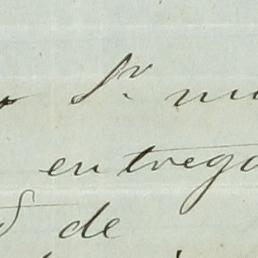 Sr. mu
entrega
de